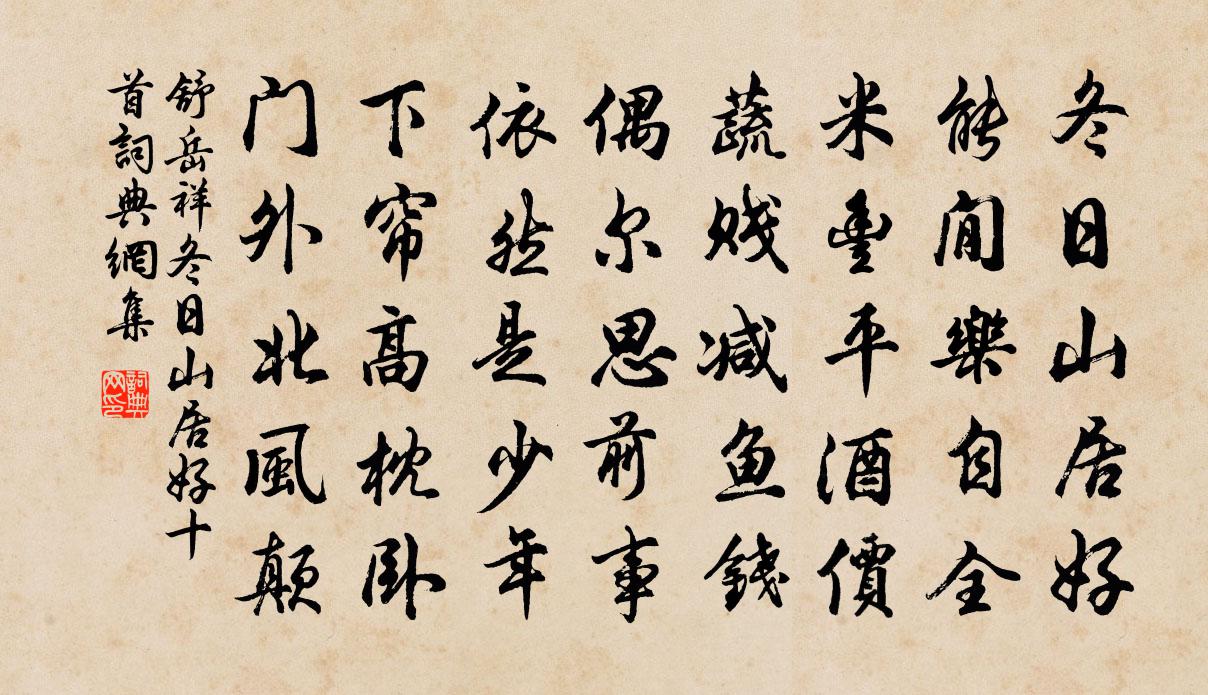 冬日山居好
能閒樂自全
米豐平酒價
蔬賤减魚錢
偶尔思前事
依然是少年
下帘高枕卧
门外北風颠
舒岳祥冬日山居好十
首詞典網集
詞典
网印